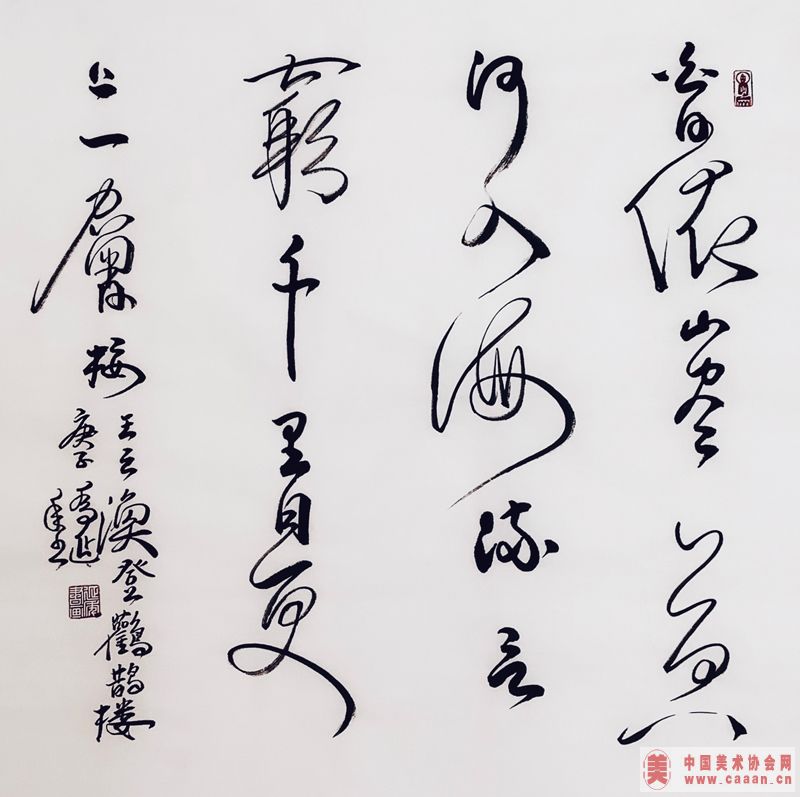 白日依山尽黄
河入海流欲
窮千里目更
上一層楼
王之渙登鸛鵲楼
庚子
中国美术协会网
www.caaan.cn